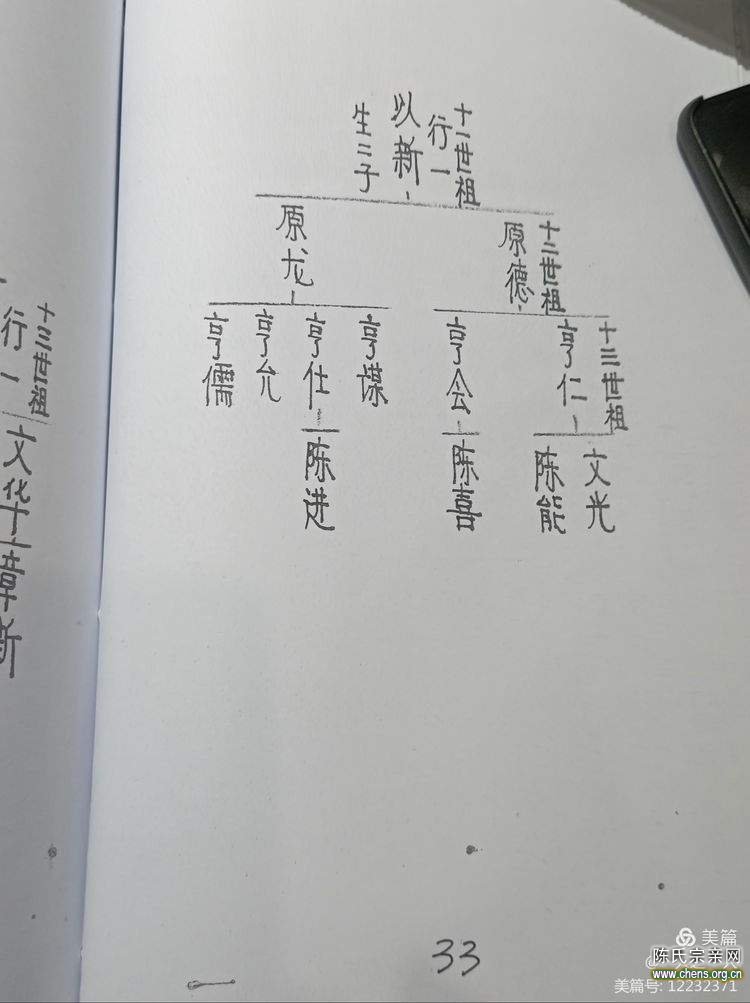 十一世祖
行一
以新
生二子
十二世祖
原德
原龙
十三世祖
亨仁
亨会
亨谋
亨仕
亨允
亨儒
文光
陈能
陈喜
陈进
十三世祖
行一
文华
章新
33
美篇
陈氏宗亲网
www.chens.org.cn
美篇号: 12232371